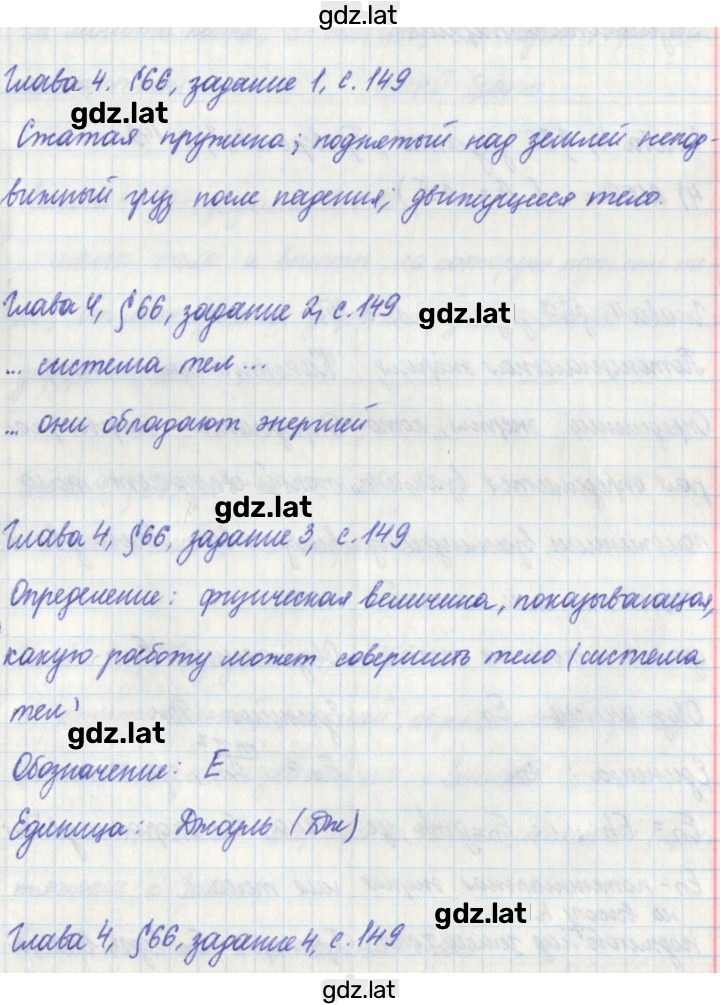 gdz.lat
Глава 4. §66, задание 1, с. 149
gdz.lat
Сжатая пружина; поднятый над землей непод-
вижный груз после падения; движущееся тело.
Глава 4, §66, задание 2, с. 149
gdz.lat
... система тел ...
... они обладают энергией
gdz.lat
Глава 4, §66, задание 3, с. 149
Определение: физическая величина, показывающая,
какую работу может совершить тело (система
тел)
gdz.lat
Обозначение: E
Единица: Джоуль (Дж)
gdz.lat
Глава 4, §66, задание 4, с. 149
gdz.lat